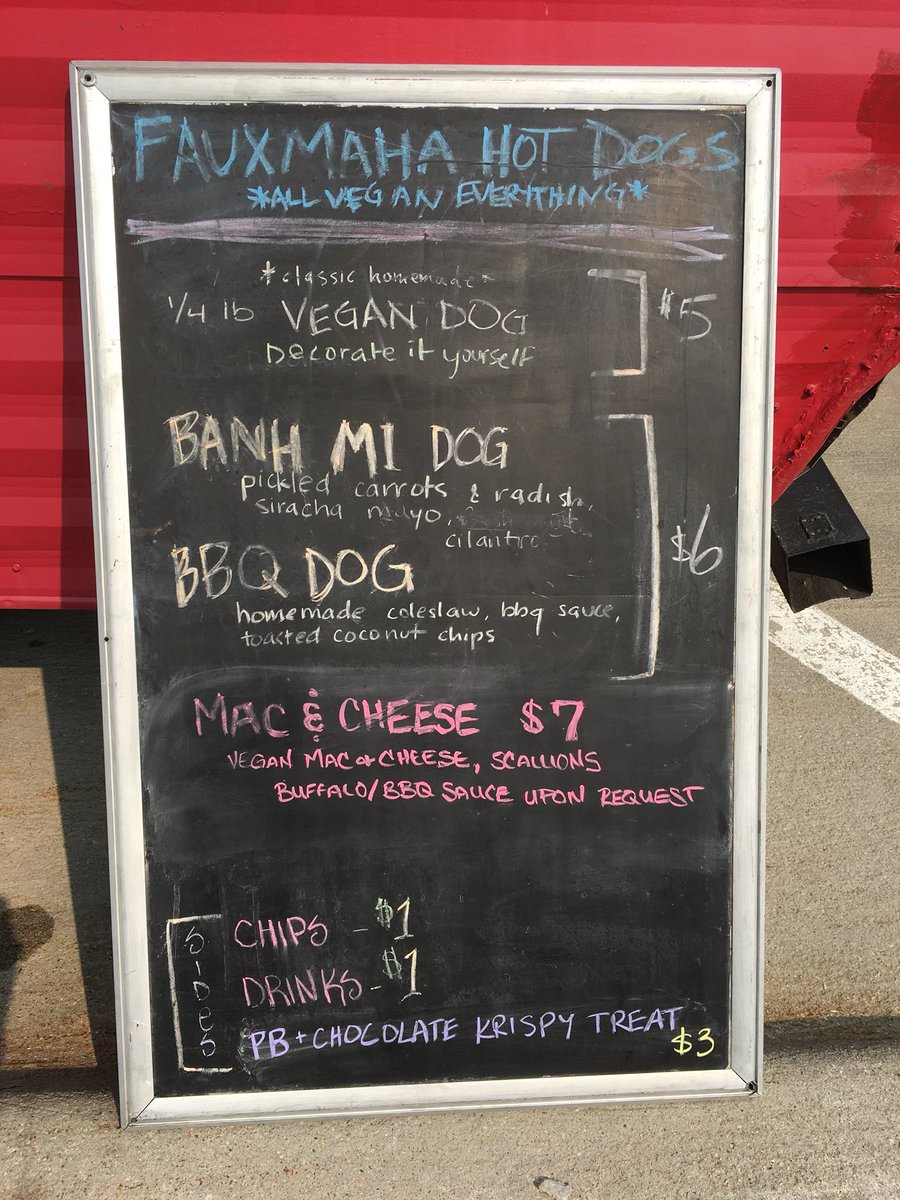 FAUXMAHA HOT DOGS
*ALL VEGAN EVERYTHING*
*classic homemade*
1/4 lb VEGAN DOG
Decorate it yourself
$5
BANH MI DOG
pickled carrots & radish,
siracha mayo,
cilantro
$6
BBQ DOG
homemade coleslaw, bbq sauce,
toasted coconut chips
MAC & CHEESE $7
VEGAN MAC & CHEESE, SCALLIONS
BUFFALO/BBQ SAUCE UPON REQUEST
SIDES
CHIPS - $1
DRINKS - $1
PB + CHOCOLATE KRISPY TREAT
$3